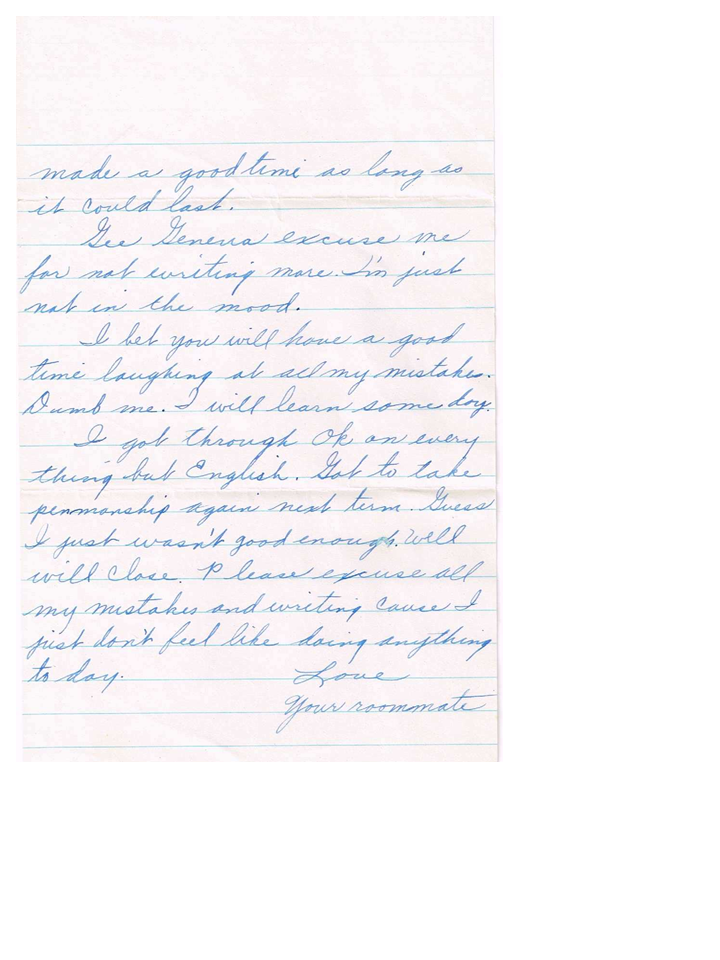 made a good time as long as
it could last.
Gee Geneva excuse me
for not writing more. I'm just
not in the mood.
I bet you will have a good
time laughing at all my mistakes.
Dumb me. I will learn some day.
I got through Ok on every
thing but English. Got to take
penmanship again next term. Guess
I just wasn't good enough. Well
will close. Please excuse all
my mistakes and writing cause I
just don't feel like doing anything
to day. Love
Your roommate